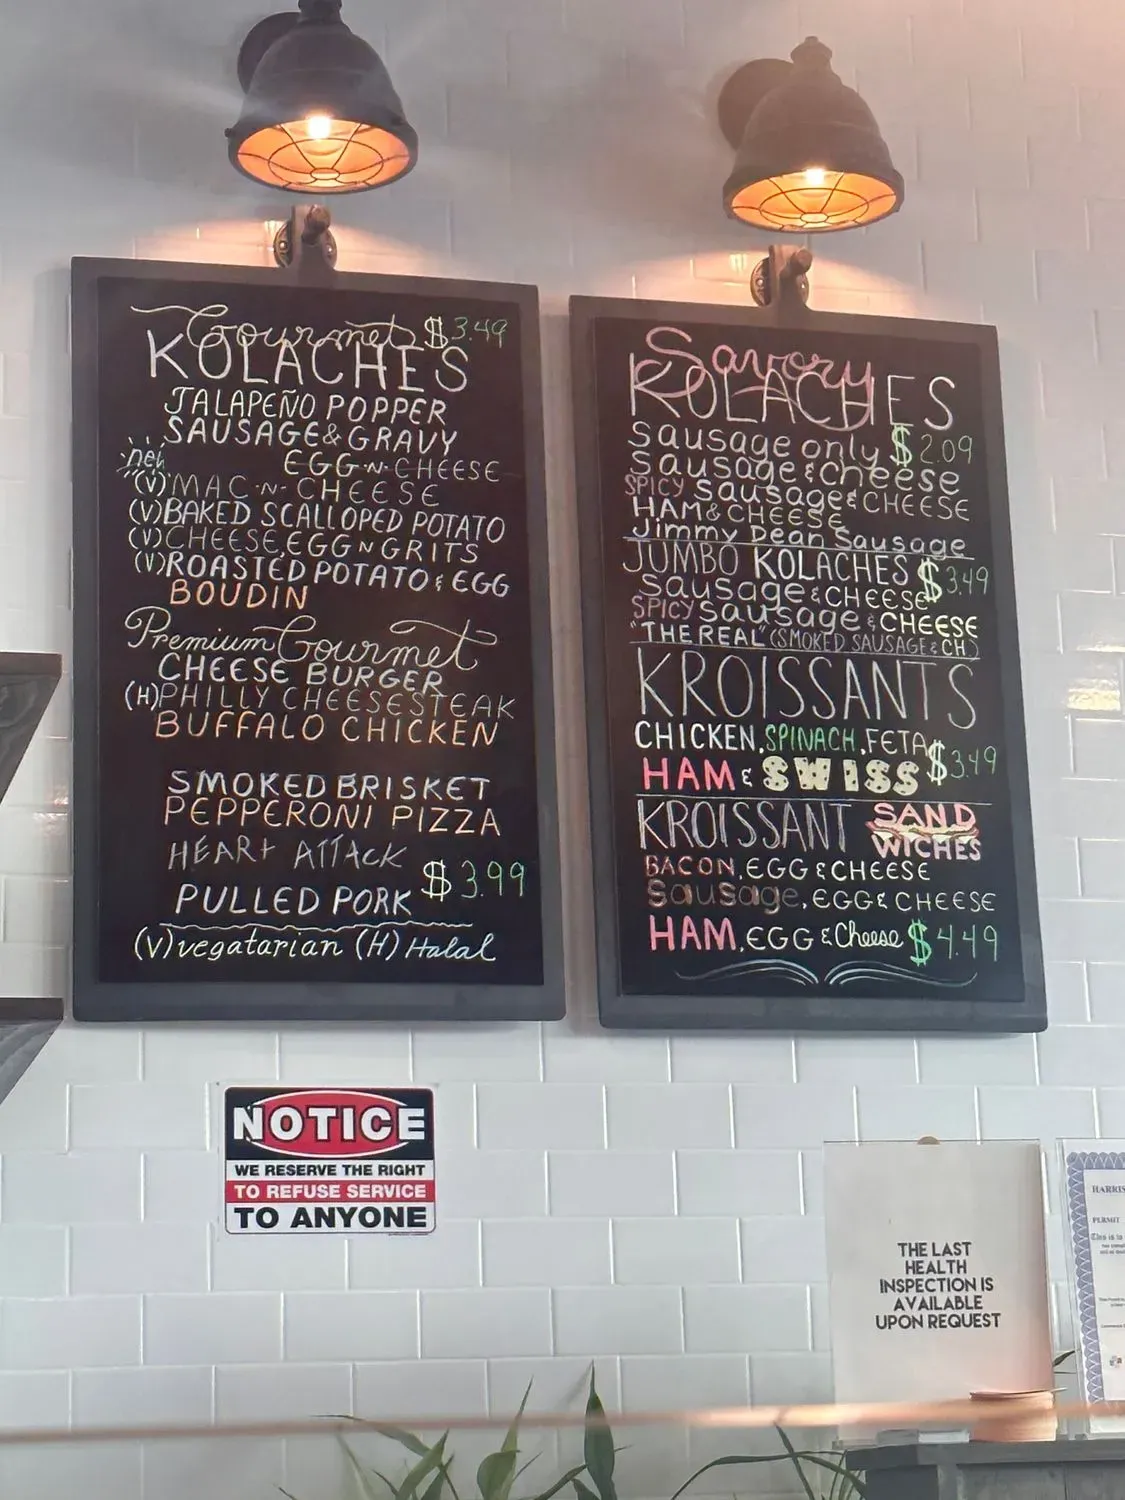 Gourmet $3.49
KOLACHES
JALAPEÑO POPPER
SAUSAGE & GRAVY
new EGG-N-CHEESE
(V) MAC-N-CHEESE
(V) BAKED SCALLOPED POTATO
(V) CHEESE, EGG N GRITS
(V) ROASTED POTATO & EGG
BOUDIN
Premium Gourmet
CHEESE BURGER
(H) PHILLY CHEESESTEAK
BUFFALO CHICKEN
SMOKED BRISKET
PEPPERONI PIZZA
HEART ATTACK
PULLED PORK $3.99
(V) vegatarian (H) Halal
Savory
KOLACHES
Sausage only $2.09
Sausage & cheese
SPICY Sausage & CHEESE
HAM & CHEESE
Jimmy Dean Sausage
JUMBO KOLACHES $3.49
Sausage & CHEESE
SPICY Sausage & CHEESE
"THE REAL" (SMOKED SAUSAGE & CH.)
KROISSANTS
CHICKEN, SPINACH, FETA $3.49
HAM & SWISS
KROISSANT SAND
WICHES
BACON, EGG & CHEESE
Sausage, EGG & CHEESE
HAM, EGG & Cheese $4.49
NOTICE
WE RESERVE THE RIGHT
TO REFUSE SERVICE
TO ANYONE
THE LAST
HEALTH
INSPECTION IS
AVAILABLE
UPON REQUEST
HARRIS
PERMIT
This is to